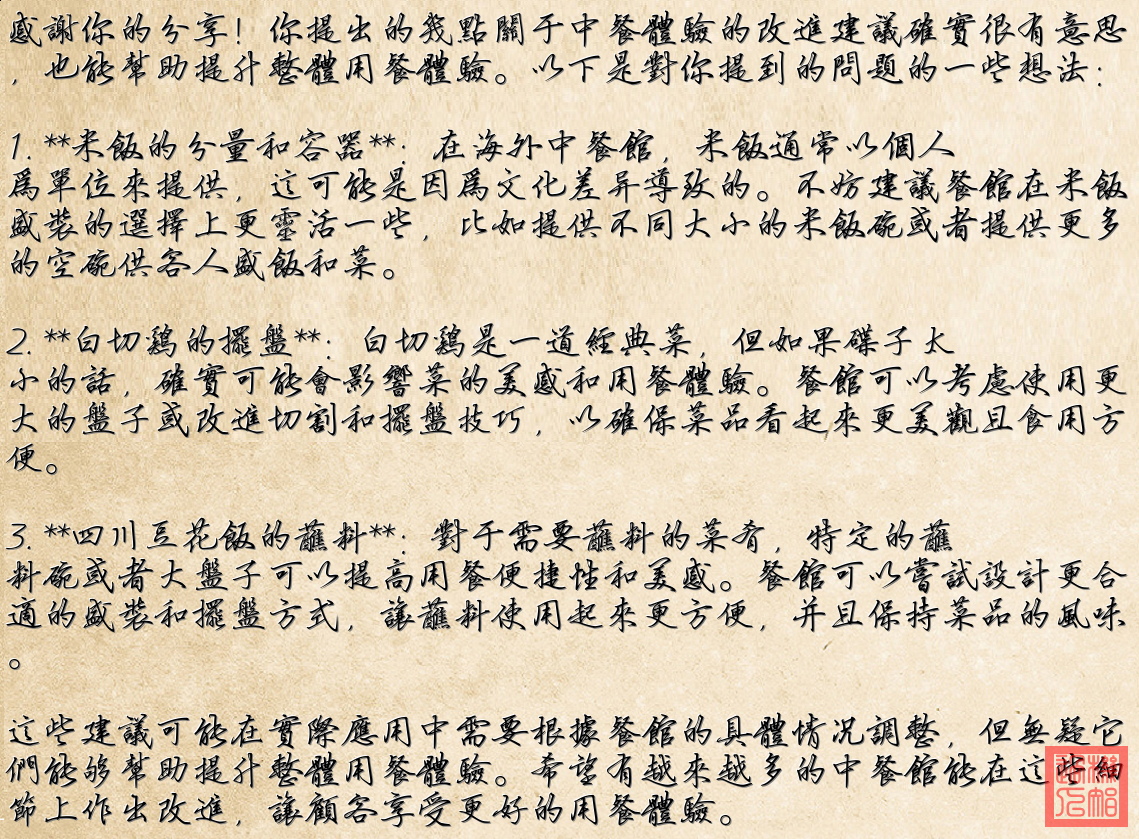 感謝你的分享！你提出的幾點關于中餐體驗的改進建議確實很有意思
，也能幫助提升整體用餐體驗。以下是對你提到的問題的一些想法：
1. **米飯的分量和容器**：在海外中餐館，米飯通常以個人
爲單位來提供，這可能是因爲文化差异導致的。不妨建議餐館在米飯
盛裝的選擇上更靈活一些，比如提供不同大小的米飯碗或者提供更多
的空碗供客人盛飯和菜。
2. **白切鷄的擺盤**：白切鷄是一道經典菜，但如果碟子太
小的話，確實可能會影響菜的美感和用餐體驗。餐館可以考慮使用更
大的盤子或改進切割和擺盤技巧，以確保菜品看起來更美觀且食用方
便。
3. **四川豆花飯的蘸料**：對于需要蘸料的菜肴，特定的蘸
料碗或者大盤子可以提高用餐便捷性和美感。餐館可以嘗試設計更合
適的盛裝和擺盤方式，讓蘸料使用起來更方便，并且保持菜品的風味
。
這些建議可能在實際應用中需要根據餐館的具體情况調整，但無疑它
們能够幫助提升整體用餐體驗。希望有越來越多的中餐館能在這些細
節上作出改進，讓顧客享受更好的用餐體驗。